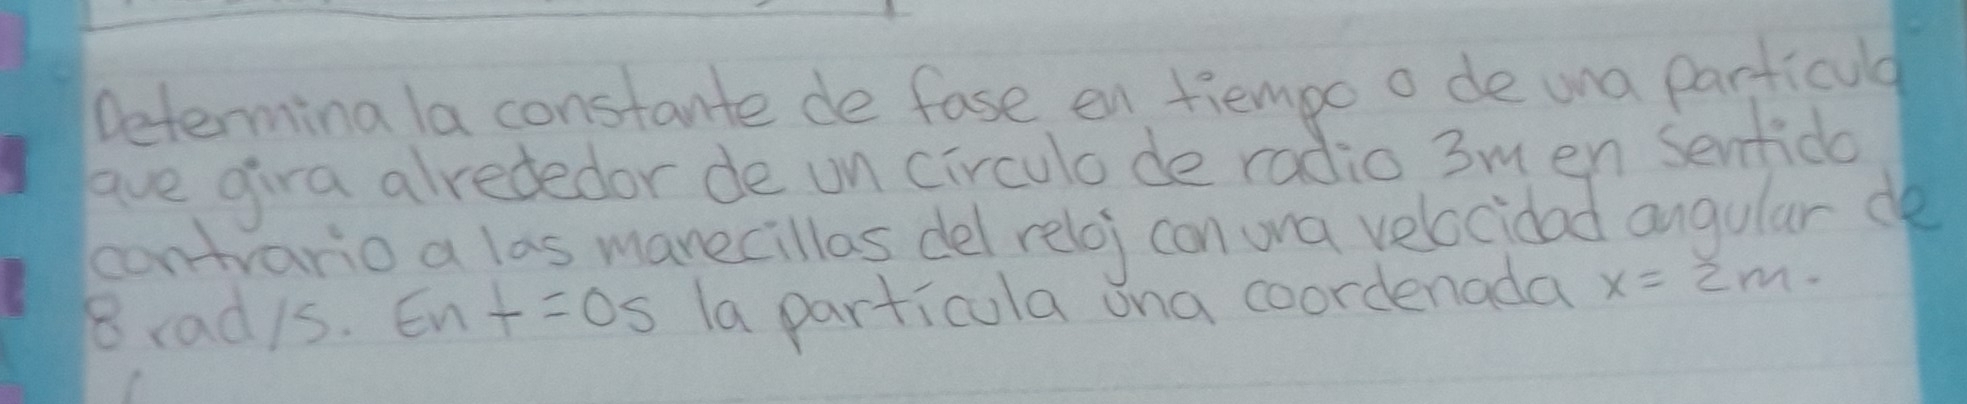 Determina la constante de fase en tiempo o de una particula
que gira alrededor de un círculo de radio 3m en sentido
contrario a las manecillas del reloj con una velocidad angular de
8 rad/s. En t=0s la partícula una coordenada x= 2m.